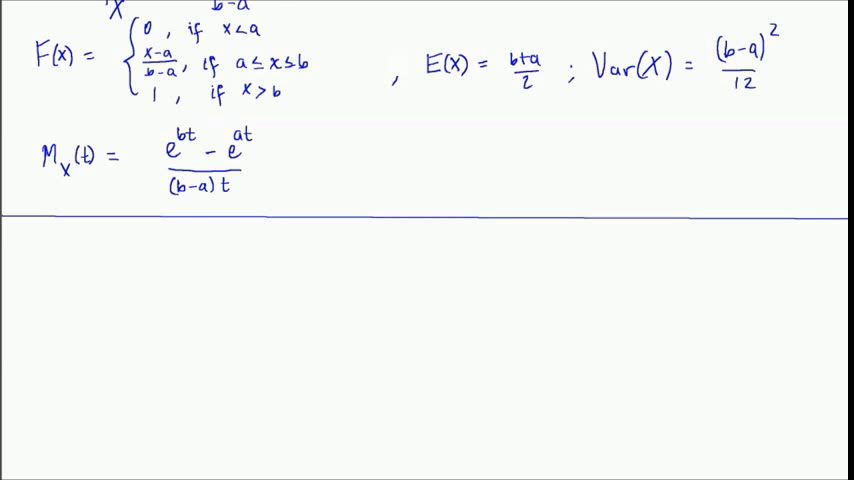 X b-a
F(x) = { 0, if x<a
x-a/b-a, if a≤x≤b
1, if x>b
, E(X) = b+a/2 ; Var(X) = (b-a)²/12
M_X(t) = e^{bt} - e^{at} / (b-a)t